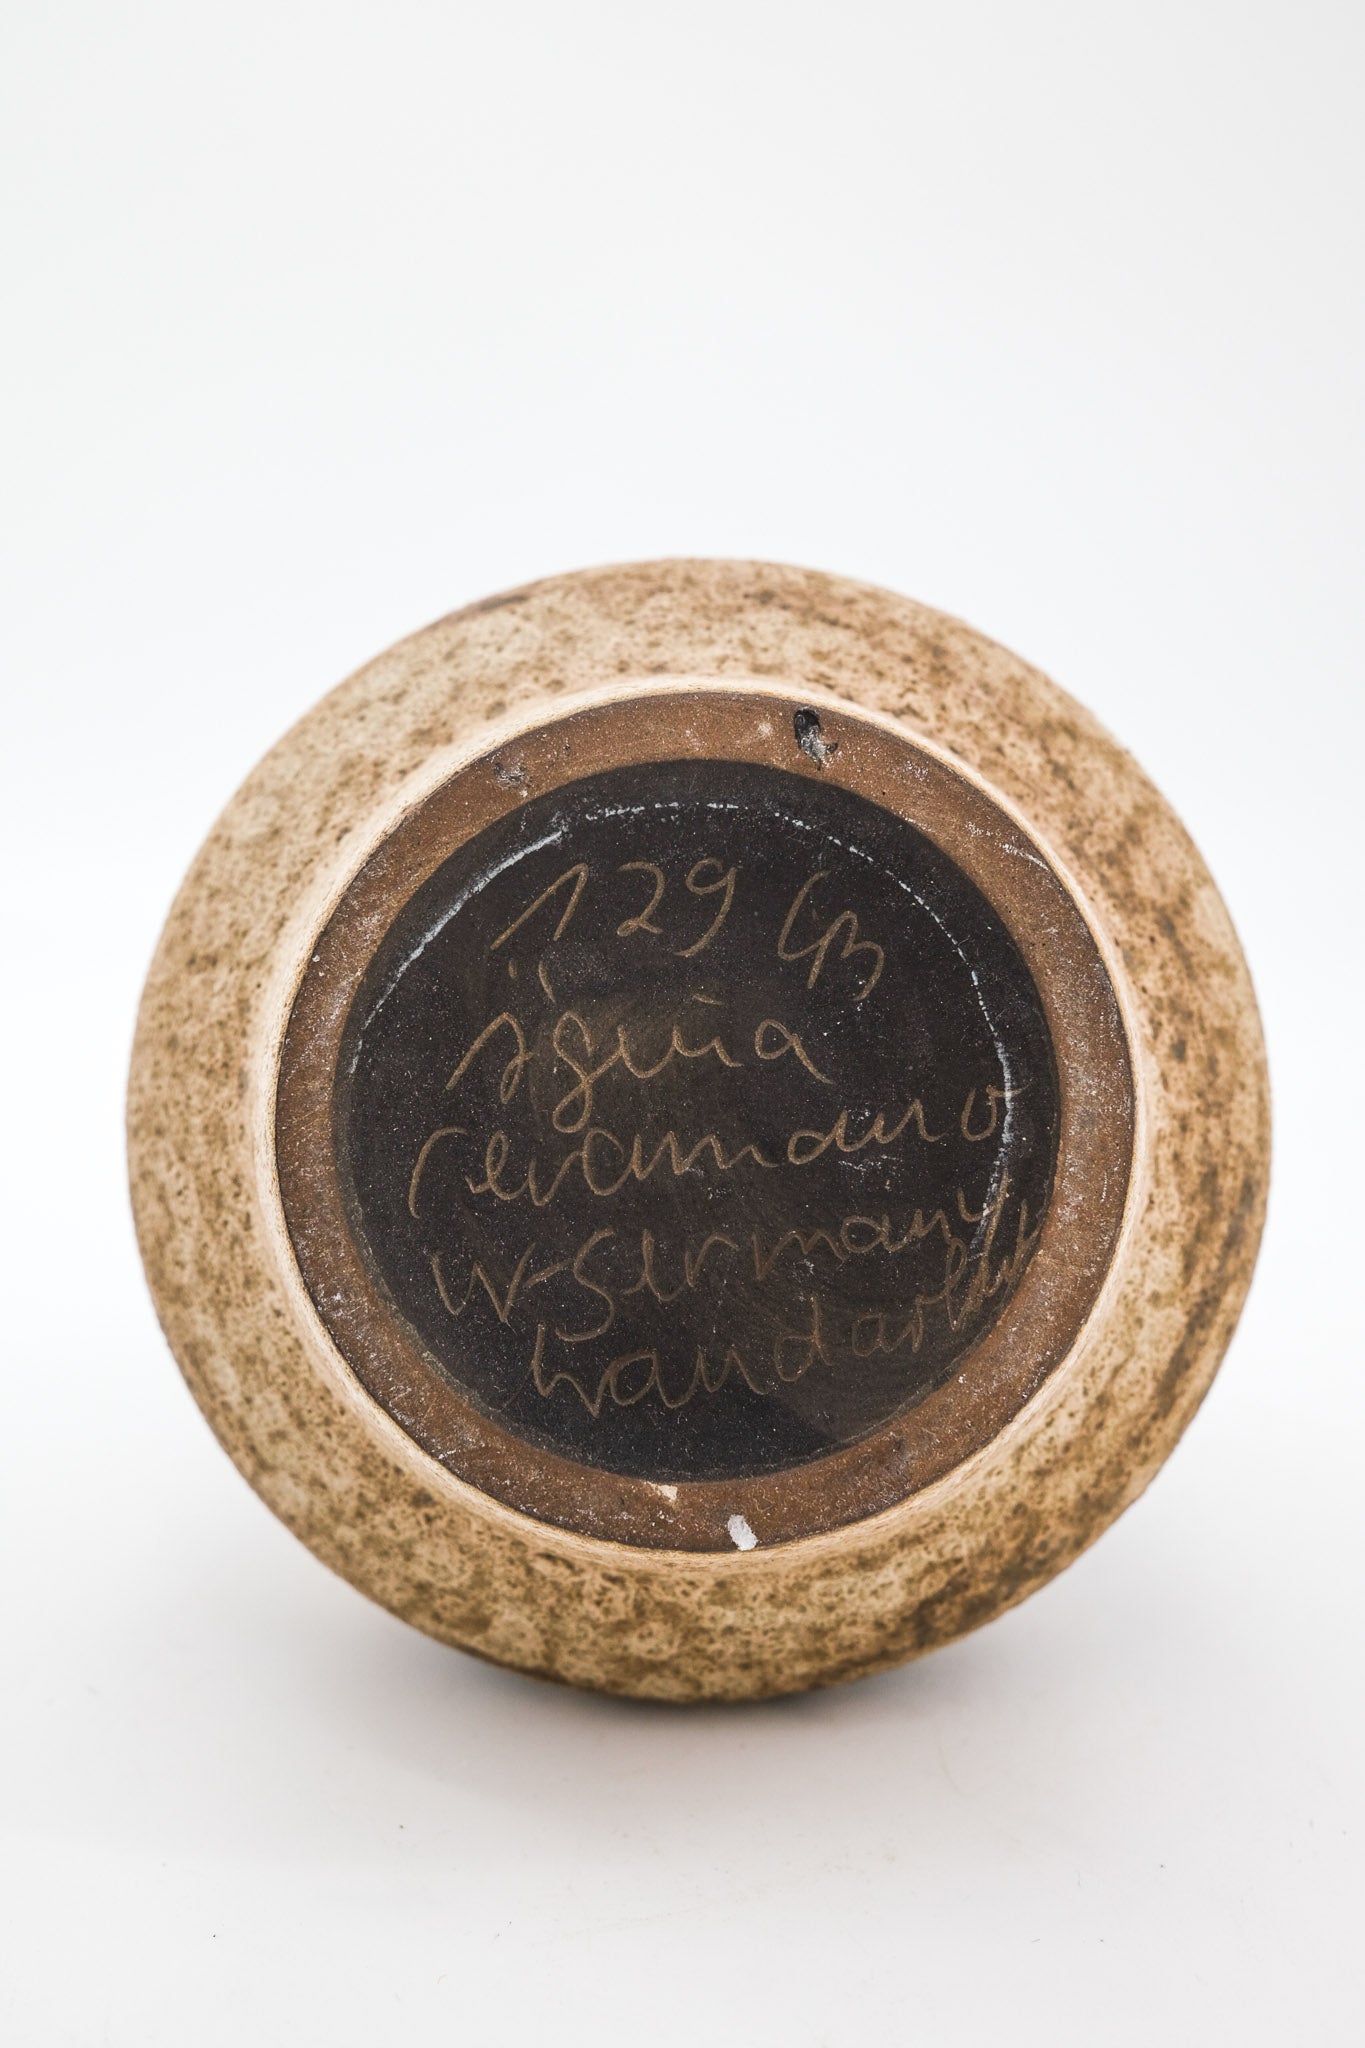 129
Ägina
Ceramano
W-Germany
Handarbeit